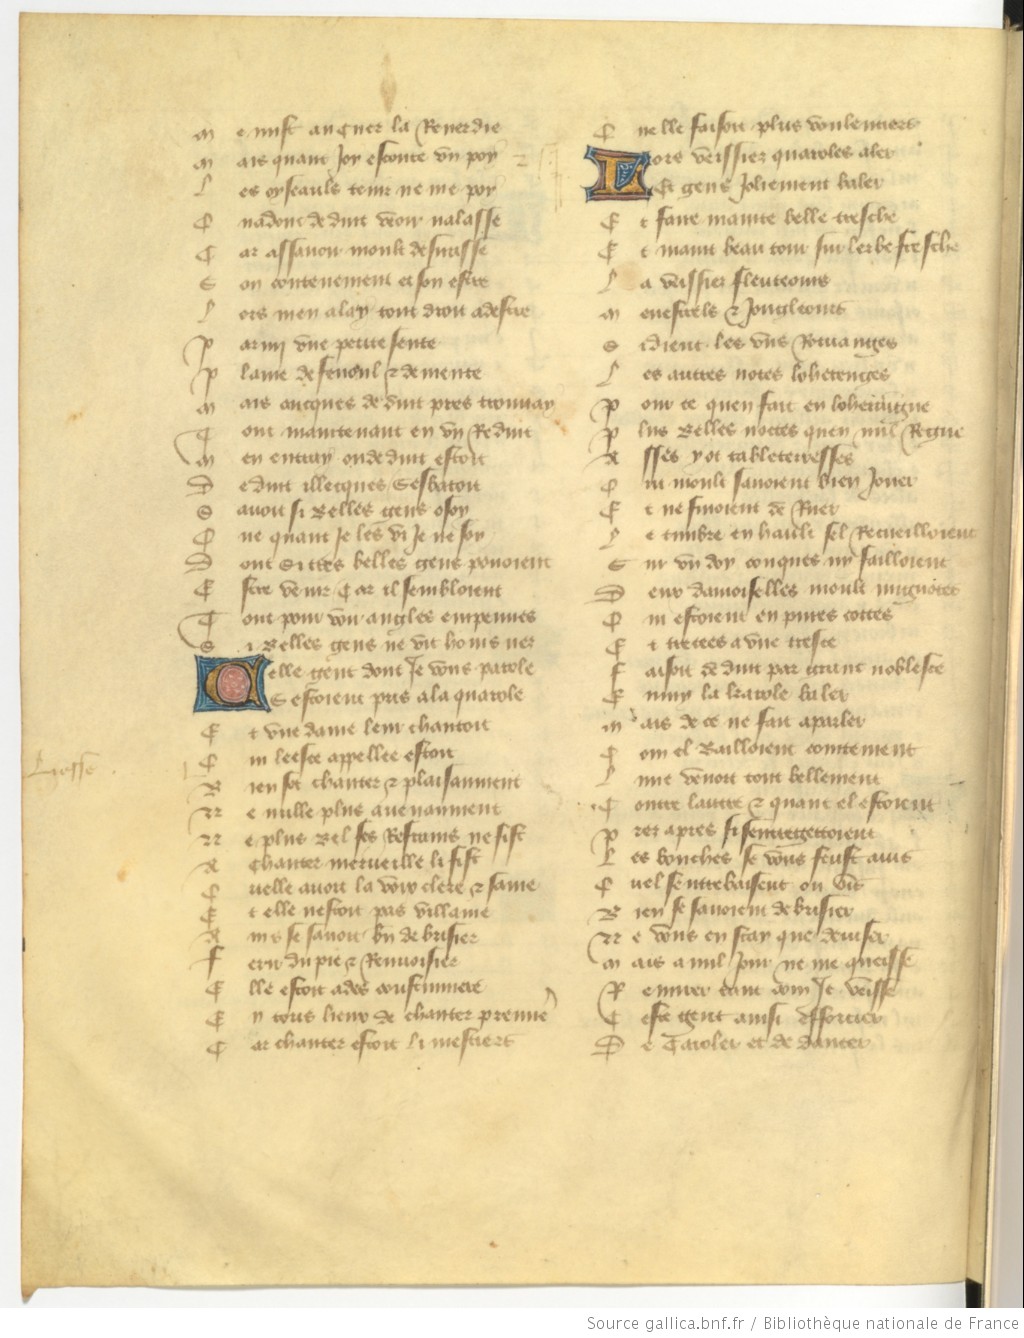 M e mist au cuer la Renerdie
M ais quant Joy escoute vn poy
L es oyseauls tenir ne me poy
Q nadonc deduit veoir nalasse
C ar assauoir moult desirasse
S on contenement et son estre
L ors men alay tout droit adestre
P army vne petite sente
P laine de fenoul & de mente
M ais aucques deduit pres trouuay
C ont maintenant en vn Reduit
M en entray ou deduit estoit
D eduit illecques sesbatoit
S auoit si Belles gens o soy
Q ue quant Je les vi Je ne soy
D ont si tres belles gens pouoient
E stre venir Car il sembloient
T out pour voir angles empennes
S i Belles gens ne vit homs nez
Celle gent dont Je vous parole
Sestoient pris ala quarole
E t vne dame leur chantoit
Q ui leesce appellee estoit
B ien sot chanter & plaisanment
N e nulle plus auenanment
N e plus Bel ses Refrains ne fist
A chanter merueille li sist
Q uelle auoit la voix clere & saine
E t elle nestoit pas villaine
A ins se sauoit bn de brisier
F erir du pie & Renuoisier
E lle estoit ades coustumiere
E n tous lieux de chanter premie
C ar chanter estoit li mestiers
Liesse
Q ue lle faisoit plus voulentiers
Lors veissiez quaroles aler
Et gens Joliement baler
E t faire mainte belle tresche
E t maint beau tour sur lerbe fresche
L a veissiez fleuteours
M enestrels & Jougleours
S i dient les vns Rotuanges
L es autres notes loherenges
P our ce quen fait en loheraigne
P lus Belles nottes quen nul Regne
A sses y ot tableteresses
Q ui moult sauoient bien Jouer
E t ne finoient de Ruer
L e timbre en hault sel Recueilloient
S ur vn doy conques ny failloient
D eux damoiselles moult mignotes
Q ui estoient en pures cottes
E t trecees a vne tresce
F aisoit deduit par grant noblesce
E nmy la karole baler
M ais de ce ne fait aparler
C om el Bailloient cointement
L une venoit tout bellement
C ontre lautre & quant el estoient
P rez apres si sentregettoient
L es bouches se vous feust auis
Q uel sentrebaisent ou vis
B ien se sauoient debrisier
N e vous en scay que deuiser
M ais a nul Jour ne me queisse
R emuer tant com Je veisse
C este gent ainsi efforcier
D e Caroler et de dancer
Source gallica.bnf.fr / Bibliothèque nationale de France